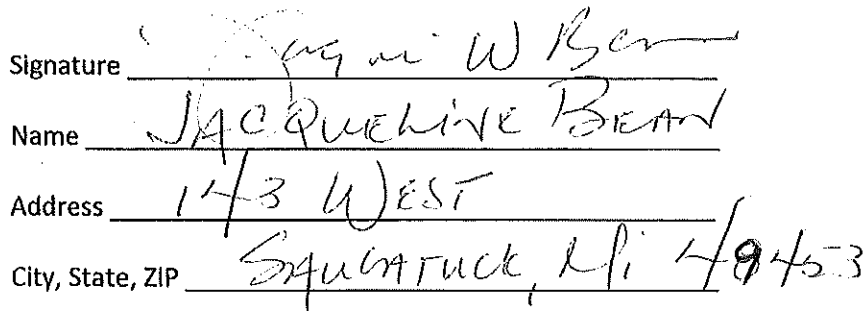 Signature W
Name JACQUELINE BEAN
Address 143 WEST
City, State, ZIP SAUGATUCK, Mi 49453